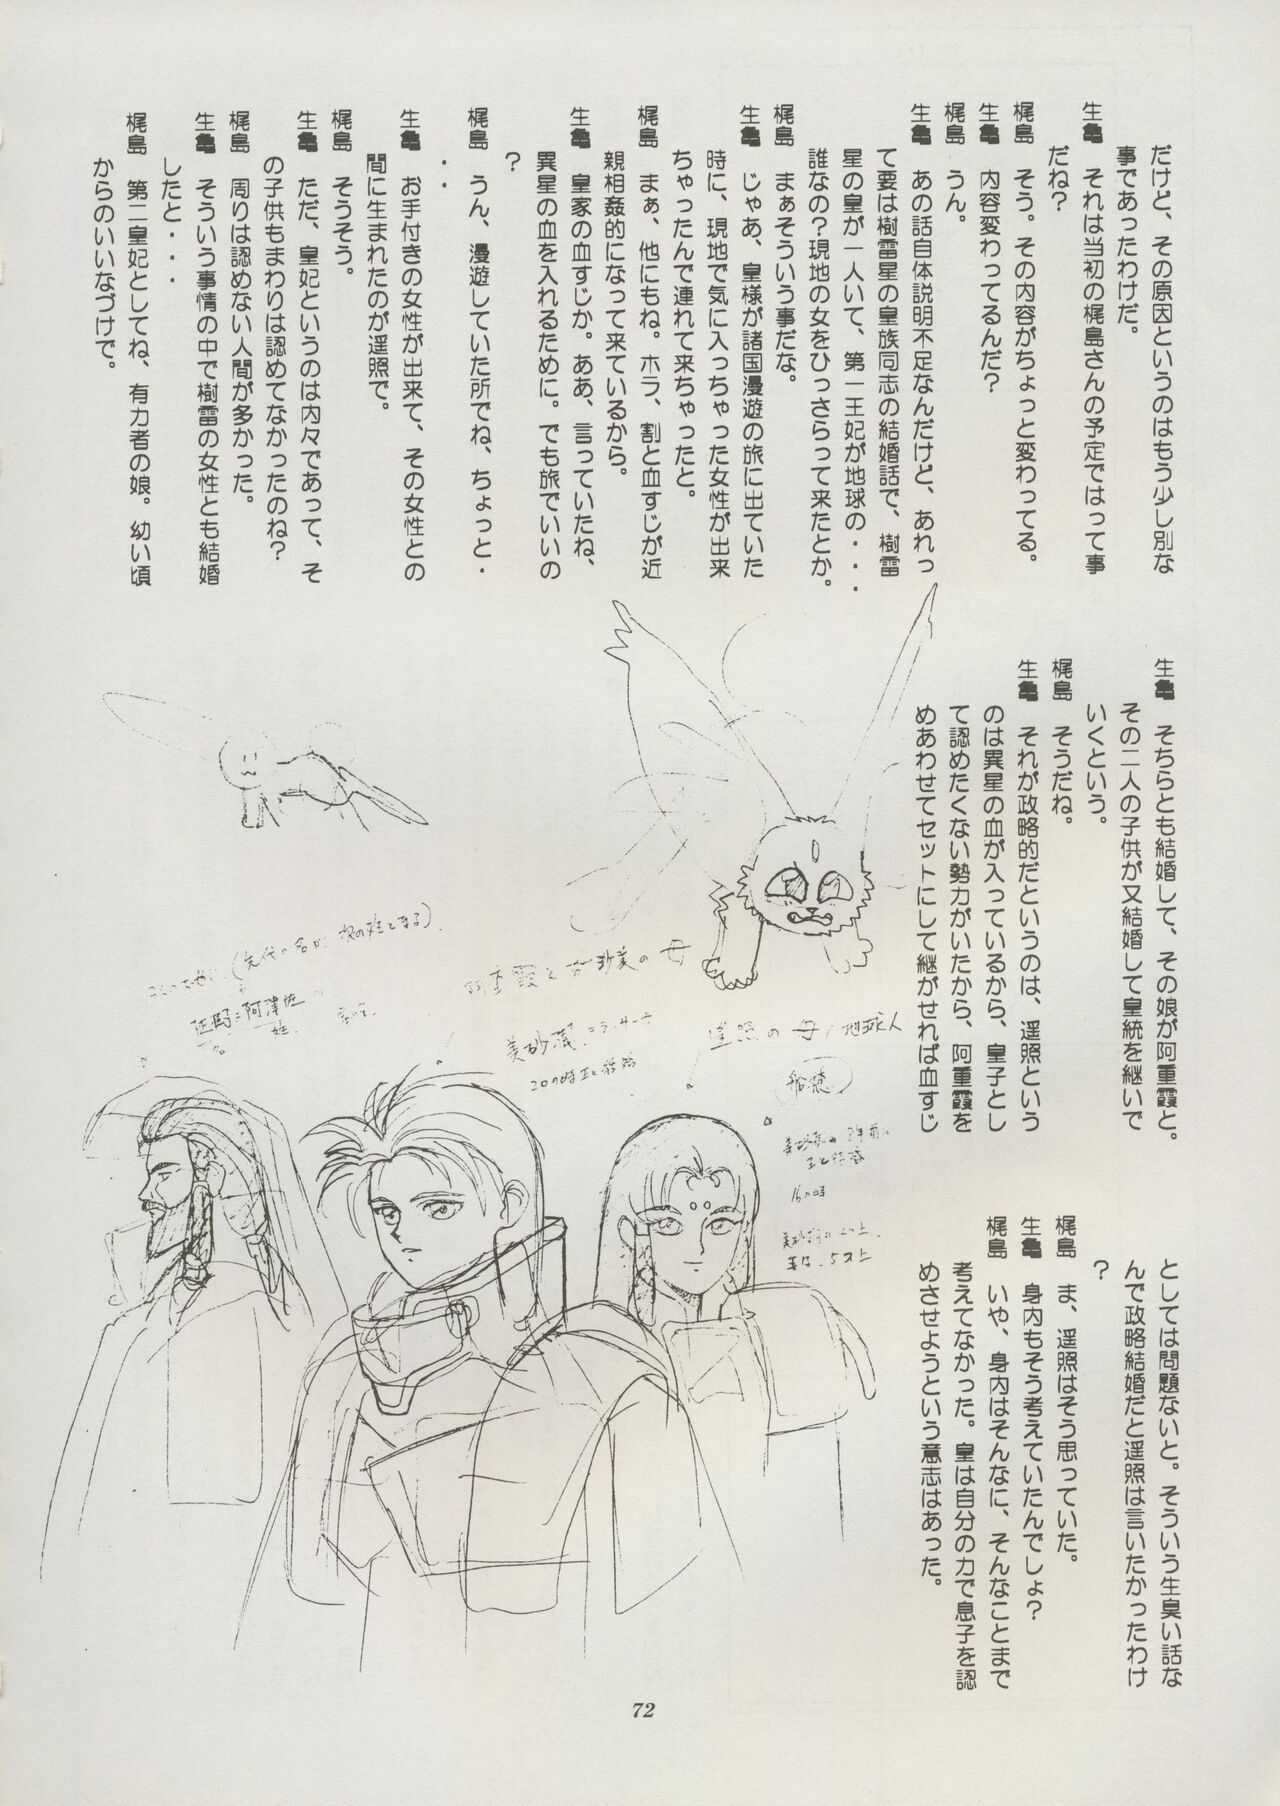 だけど、その原因というのはもう少し別な
事であったわけだ。
生亀　それは当初の梶島さんの予定ではって事
だね？
梶島　そう。その内容がちょっと変わってる。
生亀　内容変わってるんだ？
梶島　うん。
生亀　あの話自体説明不足なんだけど、あれっ
て要は樹雷星の皇族同志の結婚話で、樹雷
星の皇が一人いて、第一王妃が地球の・・・
誰なの？現地の女をひっさらって来たとか。
梶島　まぁそういう事だな。
生亀　じゃあ、皇様が諸国漫遊の旅に出ていた
時に、現地で気に入っちゃった女性が出来
ちゃったんで連れて来ちゃったと。
梶島　まぁ、他にもね。ホラ、割と血すじが近
親相姦的になって来ているから。
生亀　皇家の血すじか。ああ、言っていたね、
異星の血を入れるために。でも旅でいいの
？
梶島　うん、漫遊していた所でね、ちょっと・
・・
生亀　お手付きの女性が出来て、その女性との
間に生まれたのが遥照で。
梶島　そうそう。
生亀　ただ、皇妃というのは内々であって、そ
の子供もまわりは認めてなかったのね？
梶島　周りは認めない人間が多かった。
生亀　そういう事情の中で樹雷の女性とも結婚
したと・・・
梶島　第二皇妃としてね、有力者の娘。幼い頃
からのいいなづけで。
生亀　そちらとも結婚して、その娘が阿重霞と。
その二人の子供が又結婚して皇統を継いで
いくという。
梶島　そうだね。
生亀　それが政略的だというのは、遥照という
のは異星の血が入っているから、皇子とし
て認めたくない勢力がいたから、阿重霞を
めあわせてセットにして継がせれば血すじ
としては問題ないと。そういう生臭い話な
んで政略結婚だと遥照は言いたかったわけ
？
梶島　ま、遥照はそう思っていた。
生亀　身内もそう考えていたんでしょ？
梶島　いや、身内はそんなに、そんなことまで
考えてなかった。皇は自分の力で息子を認
めさせようという意志はあった。
(先代の名が次の姓となる)
阿重霞と砂沙美の母
遥照の母/地球人
船穂
16の時
阿津佐
姓
名
72